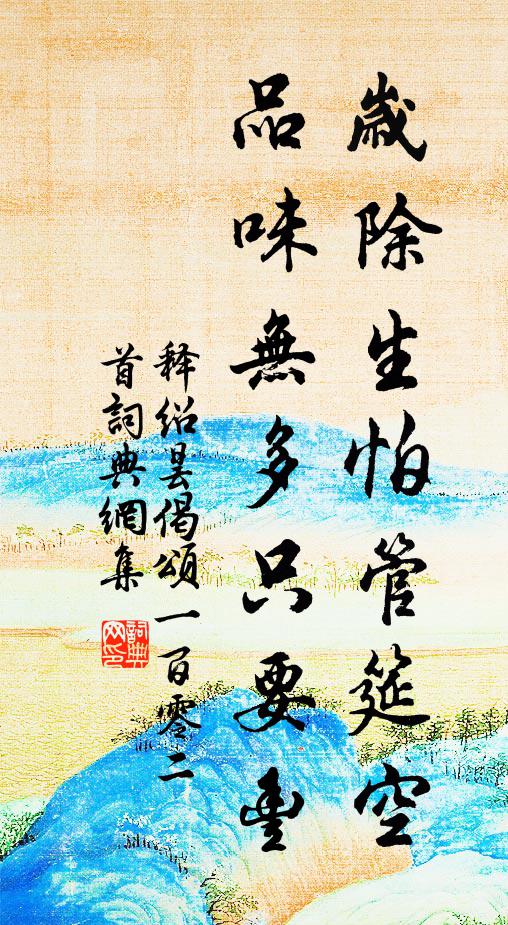 歲除生怕管筵空
品味無多只要豊
释绍昙偈頌一百零二
首詞典網集
詞典网印